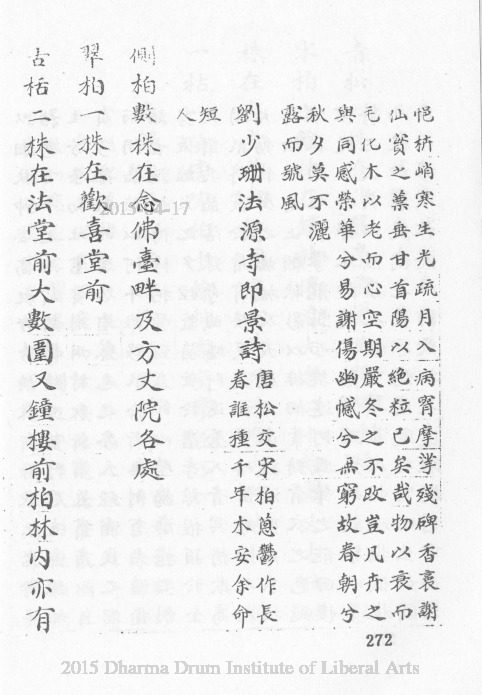 悒枿峭寒生光疏月入病胥摩挲殘碑香裛謝
仙賓之藁垂甘首陽以絶粒已矣哉物以衰而
乇化木以老而心空期嚴冬之不改豈凡卉之
與同感榮華兮易謝傷幽憾兮無窮故春朝兮
秋夕莫不灑
露而號風
劉少珊法源寺即景詩
唐松交宋柏蔥鬱作長
短
春誰種千年木安余命
側柏數株在念佛臺畔及方丈院各處
翠柏一株在歡喜堂前
古栝二株在法堂前大數圍又鐘樓前柏林内亦有
2015-04-17
272
2015 Dharma Drum Institute of Liberal Arts